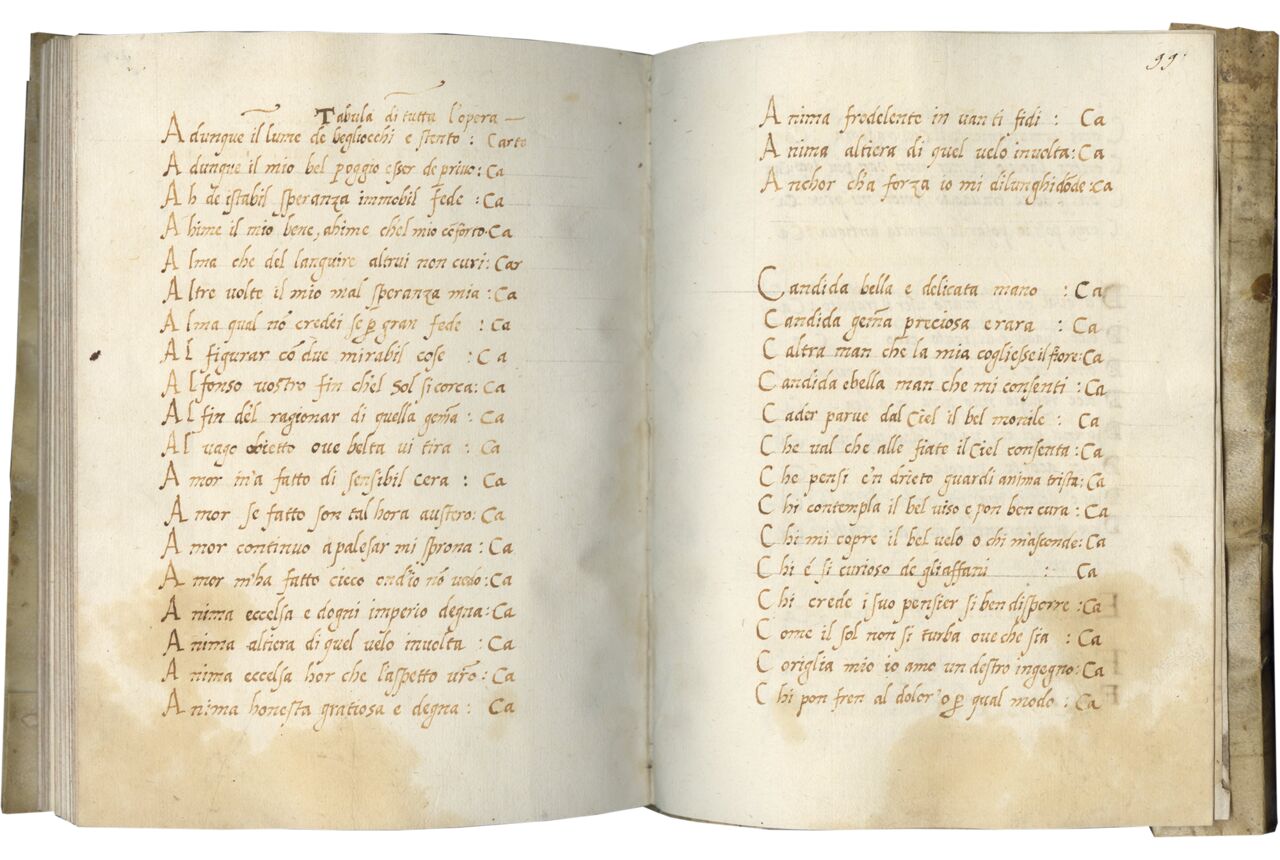 Tabula di tutta l'opera —
Adunque il lume de begliocchi e stento : Carte
Adunque il mio bel poggio esser de privo: Ca
Ah de istabil speranza immobil fede : Ca
Ahime il mio bene, ahime chel mio cōforto. Ca
Alma che del languire altrui non curi: Car
Altre volte il mio mal speranza mia : Ca
Alma qual nō credei se ꝑ gran fede : Ca
Al figurar cō due mirabil cose : Ca
Alfonso vostro fin ch'el Sol si corca: Ca
Al fin del ragionar di quella gem̄a : Ca
Al vago obietto ove belta vi tira : Ca
Amor m'a fatto di sensibil cera : Ca
Amor se fatto son tal hora austero: Ca
Amor continuo a palesar mi sprona : Ca
Amor m'ha fatto cieco ond'io nō vedo: Ca
Anima eccelsa e dogni imperio degna: Ca
Anima altiera di quel velo involta : Ca
Anima eccelsa hor che l'aspetto vr̄o : Ca
Anima honesta gratiosa e degna : Ca
99
Anima fredelente in van ti fidi : Ca
Anima altiera di quel velo involta: Ca
Anchor ch'a forza io mi dilunghi dōde: Ca
Candida bella e delicata mano : Ca
Candida gem̄a preciosa e rara : Ca
Caltra man che la mia cogliesse il fiore: Ca
Candida e bella man che mi consenti : Ca
Cader parve dal Ciel il bel monile : Ca
Che val che alle fiate il Ciel consenta: Ca
Che pensi e'n drieto guardi anima trista: Ca
Chi contempla il bel viso e pon ben cura : Ca
Chi mi copre il bel velo o chi m'asconde: Ca
Chi é si curioso de gli affani : Ca
Chi crede i suo pensier si ben disporre : Ca
Come il sol non si turba ove che sia : Ca
Coriglia mio io amo un destro ingegno: Ca
Chi pon fren al dolor o ꝑ qual modo : Ca